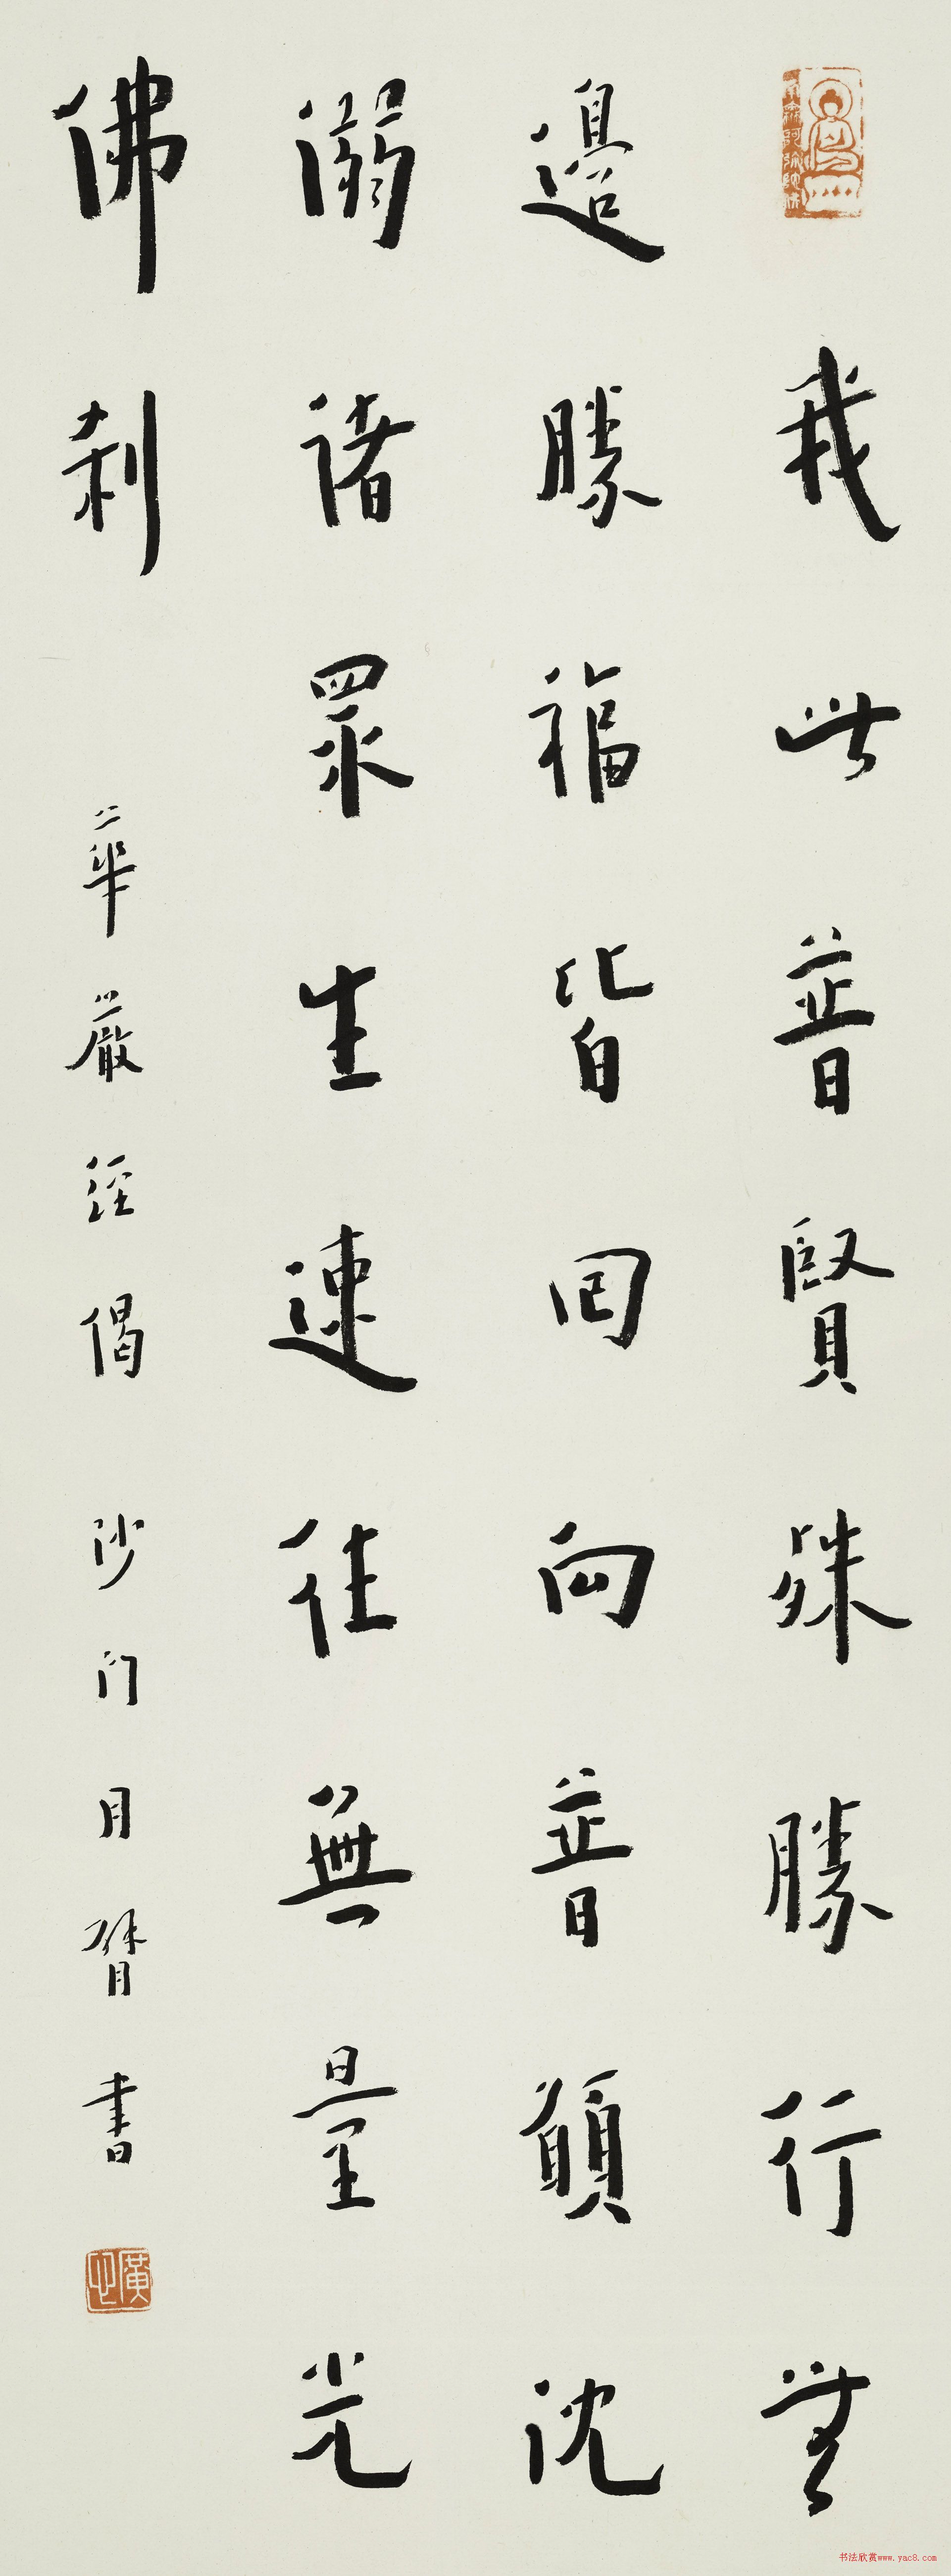 我此普賢殊勝行無
邊勝福皆回向普願沈
溺諸眾生速往無量光
佛剎
華嚴經偈
沙门月臂書
南無阿弥陀佛
書法欣赏www.yac8.com